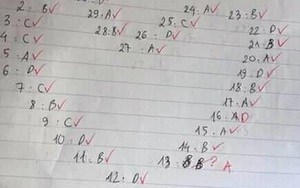 2: B✓
3: C✓
4: C✓
5: A✓
6: D✓
7: C✓
8: B✓
9: C✓
10: D✓
11: B✓
12: D✓
13: B? A
14: B✓
15: A✓
16: A D
17: A✓
18: B✓
19: D✓
20: A✓
21: B✓
22: D✓
23: B✓
24: A✓
25: C✓
26: D✓
27: A✓
28: B✓
29: A✓